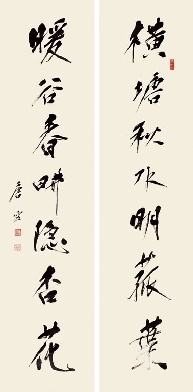 横塘秋水明菰葉
暖谷春畊隐杏花
唐寅